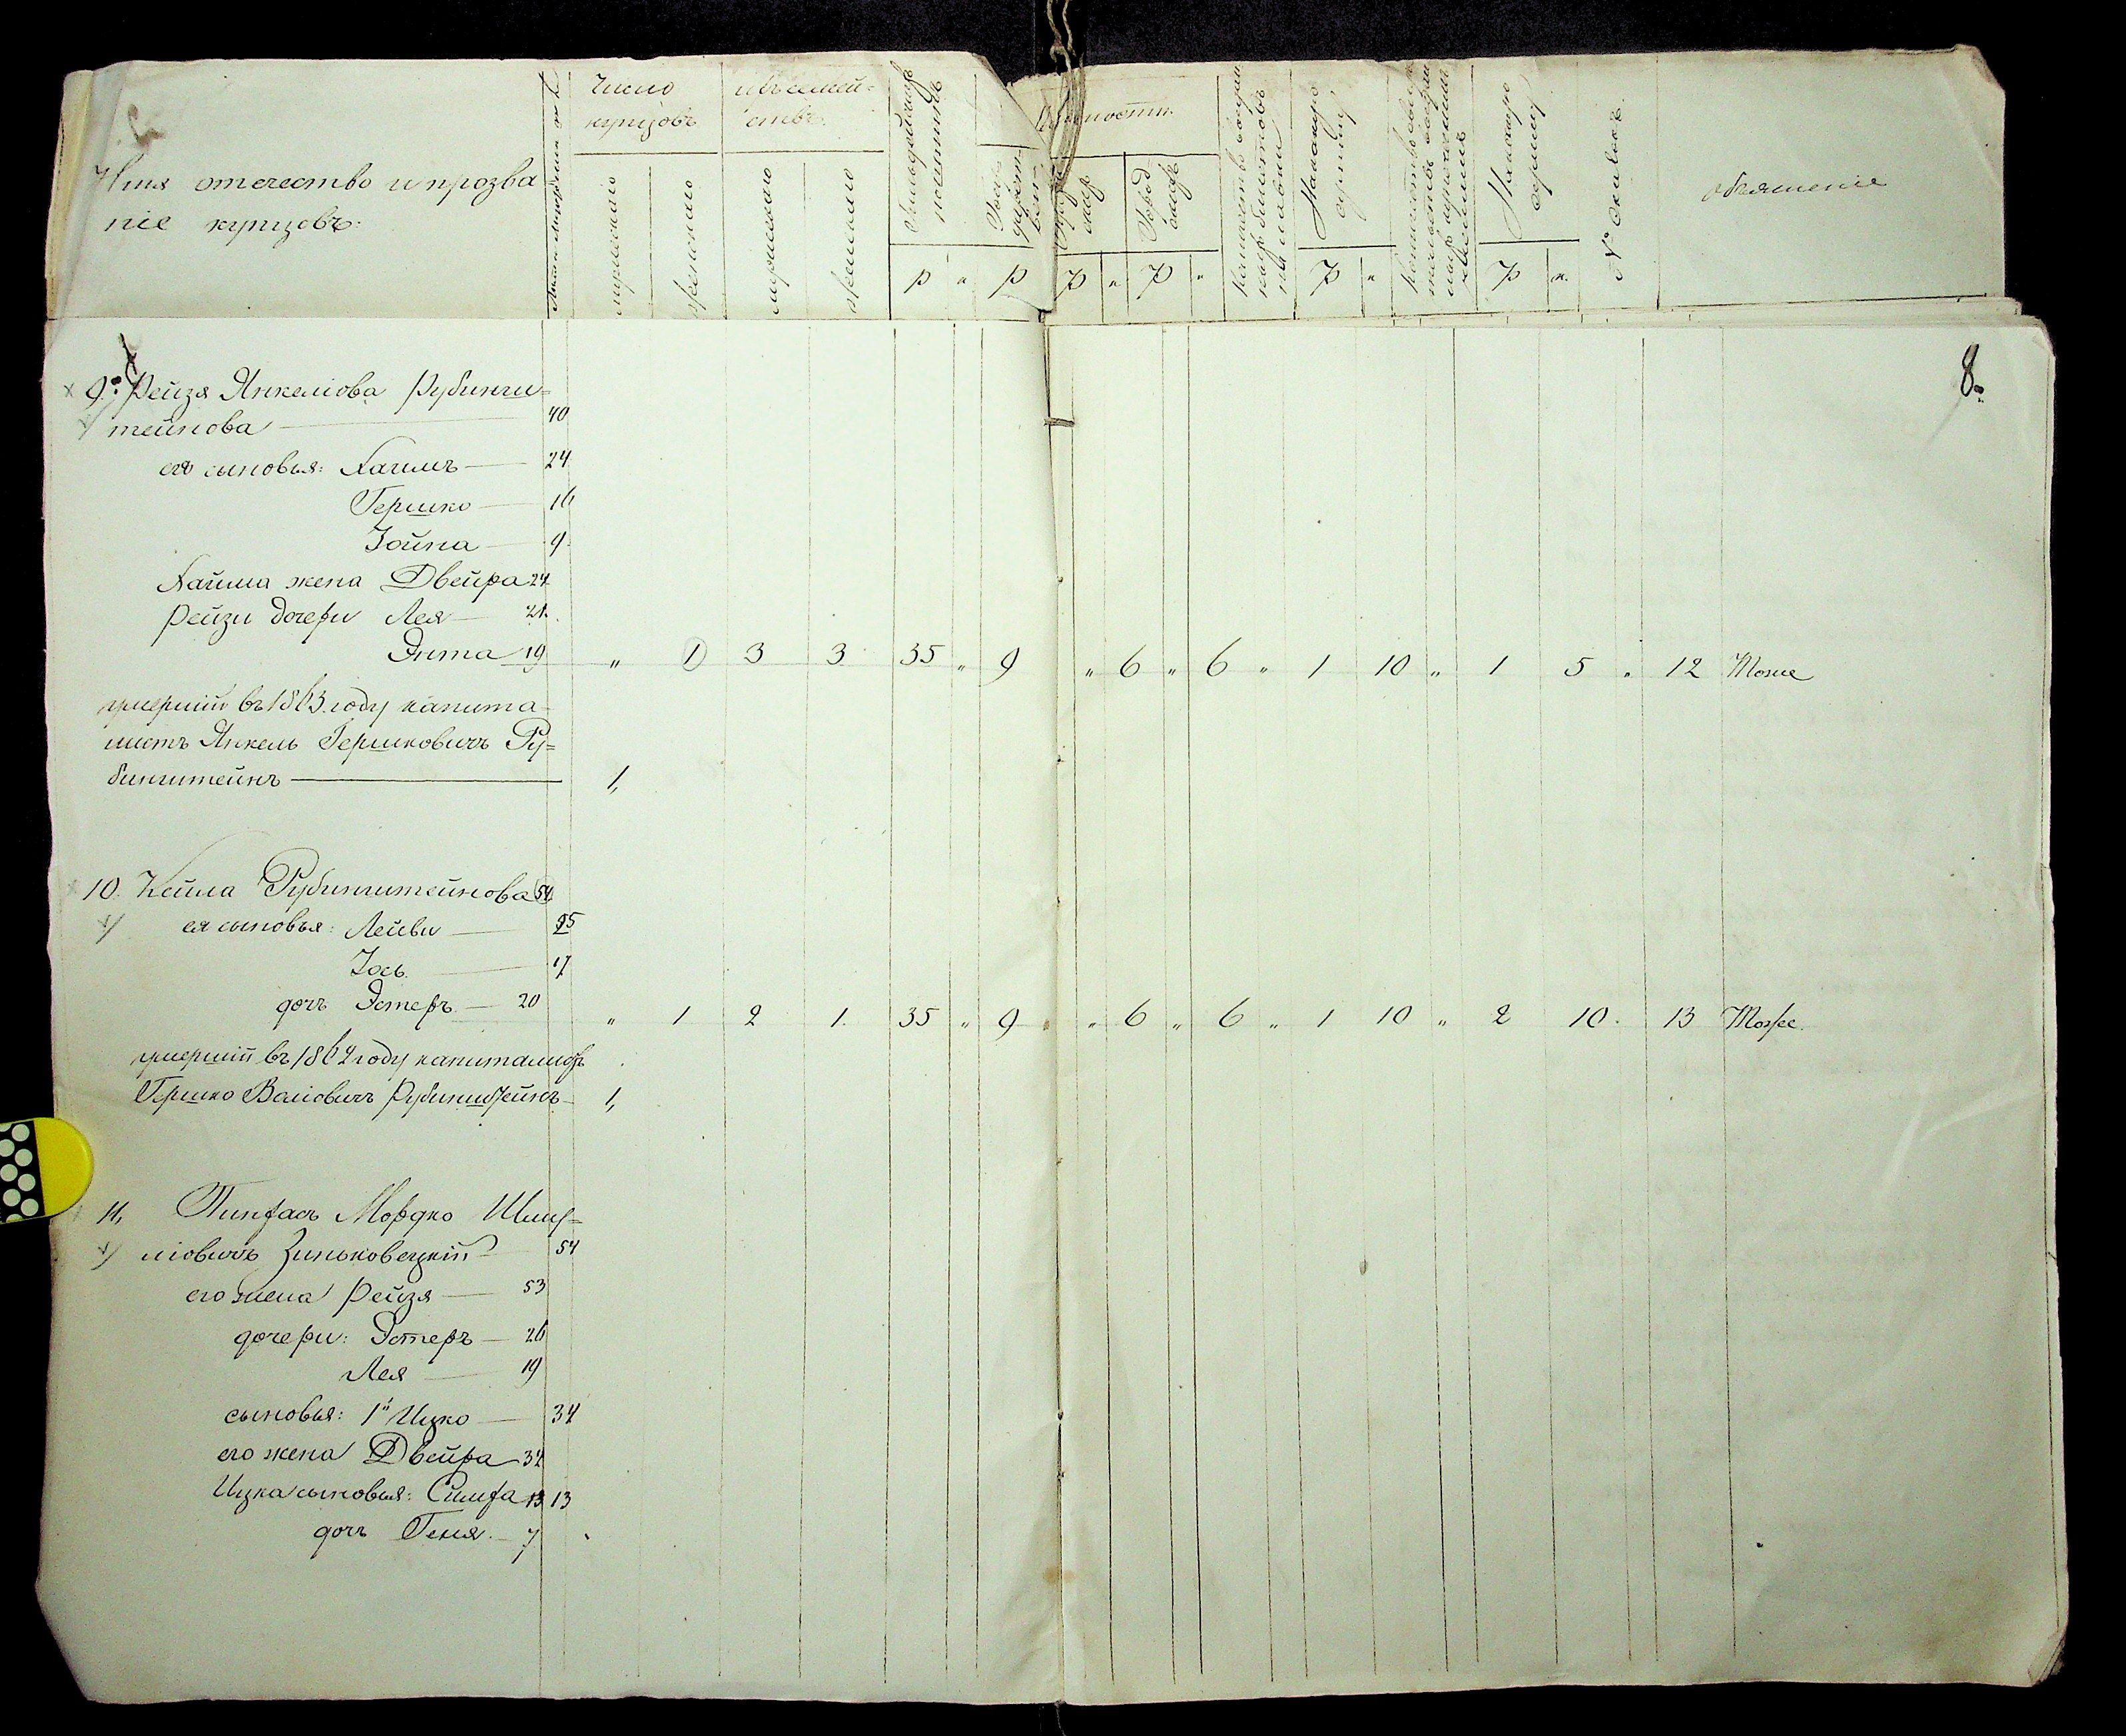 Имя отечество и прозва
ніе купцовъ:
Число
купцовъ
ихъ семей-
ствъ.
мужескаго
женскаго
мужескаго
женскаго
P " P
P " P "
P "
P к.
№ скидокъ
объясненіе
8.
9. Рейзя Янкеліова Рубинши-
тейнова 40
его сыновья: Хаимъ 24
Гершко 16
Іойна 9
Хаима жена Двейра 24
Рейзи дочери Лея 21.
Энта 19 " 1 3 3 35 " 9 " 6 " 6 " 1 10 " 1 5 " 12 Тоже
умершій въ 1863 году капита-
листъ Янкель Гершковичъ Ру-
бинштейнъ 1,
10. Кейла Рубинштейнова 54
ея сыновья: Лейви 25
Іось 17
дочь Эстеръ 20 " 1 2 1. 35 " 9 " " 6 " 6 " 1 10 " 2 10. 13 Тоже.
умершій въ 1862 году капиталистъ
Гершко Воліовичъ Рубинштейнъ 1,
11, Пинхасъ Мордко Шму-
ліовичъ Зиньковецкій 54
его жена Рейзя 53
дочери: Эстеръ 26
Лея 19
сыновья: 1й Ицко 34
его жена Двейра 34
Ицка сыновья: Симха 13 13
дочь Геня. 7